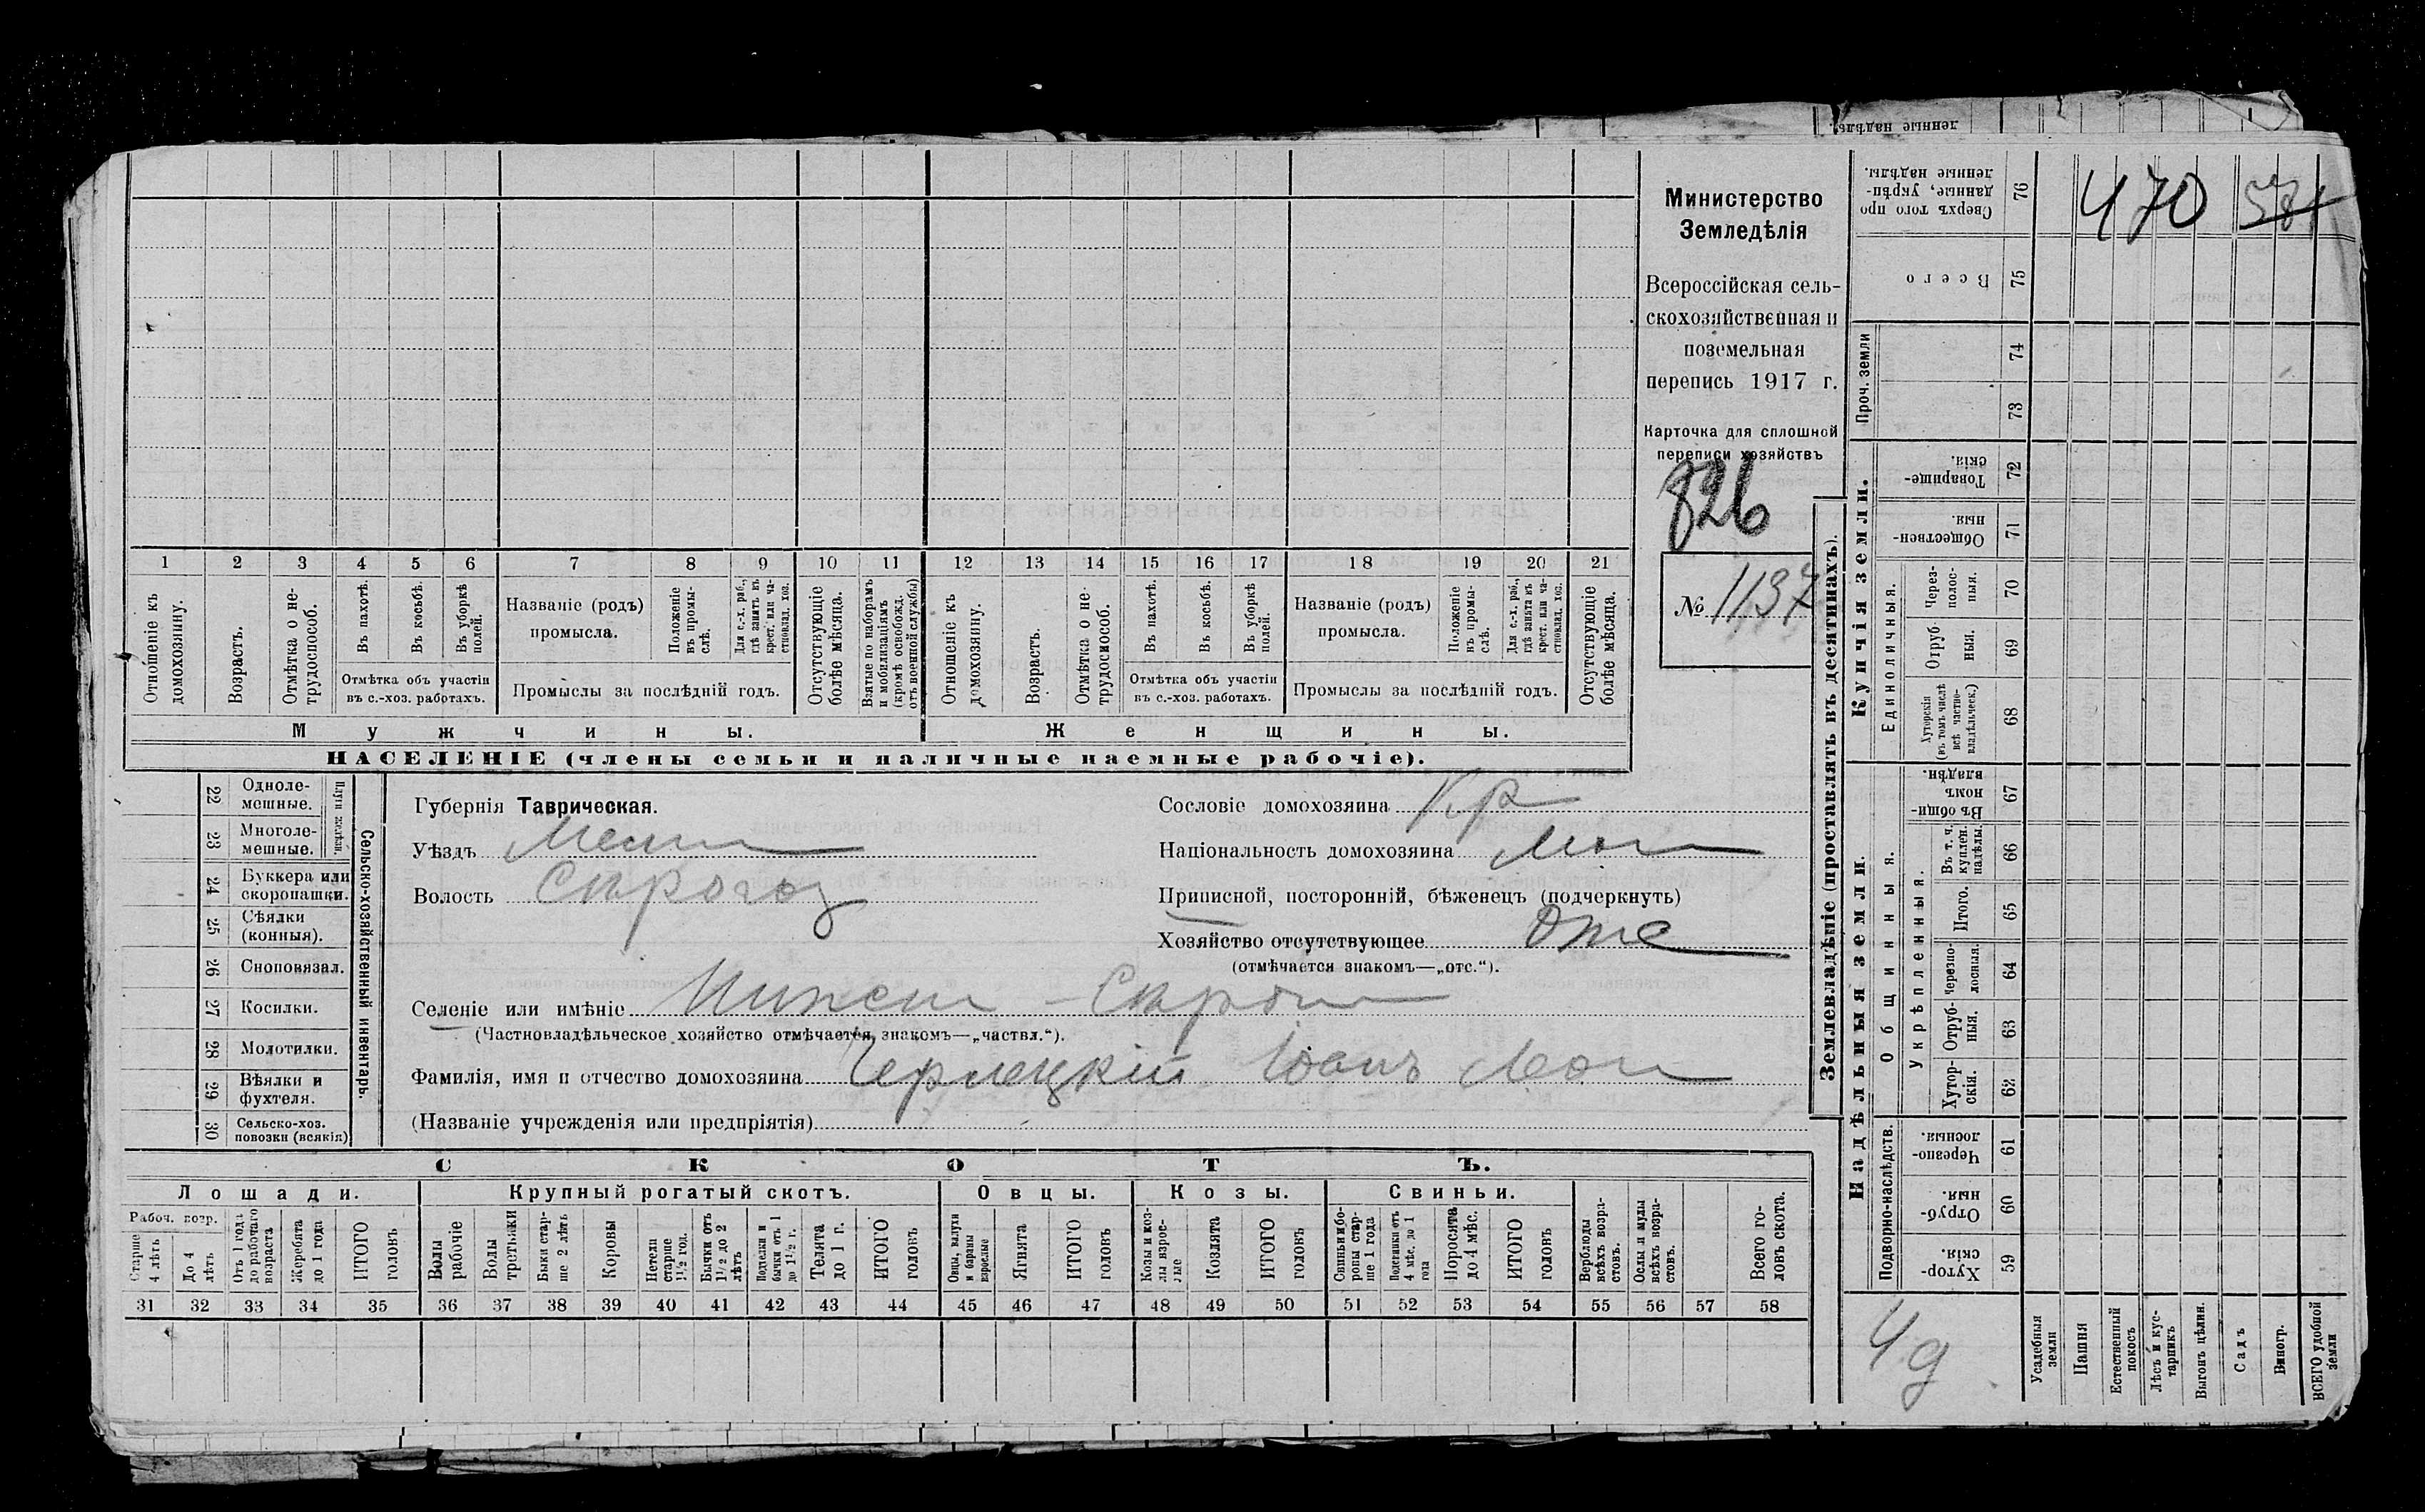 ленные надѣлы.
Министерство
Земледѣлія
Всероссійская сель-
скохозяйственная и
поземельная
перепись 1917 г.
Карточка для сплошной
переписи хозяйствъ
826
№ 1137
1 2 3 4 5 6 7 8 9 10 11 12 13 14 15 16 17 18 19 20 21
Отношеніе къ домохозяину.
Возрастъ.
Отмѣтка о не-трудоспособ.
Въ пахотѣ.
Въ косьбѣ.
Въ уборкѣ полей.
Отмѣтка объ участіи
въ с.-хоз. работахъ.
Названіе (родъ)
промысла.
Положеніе въ промы-слѣ.
Для с.-х. раб., гдѣ занятъ въ крест. или ча-стновлад. хоз.
Промыслы за послѣдній годъ.
Отсутствующіе болѣе мѣсяца.
Взятые по наборамъ и мобилизаціямъ (кромѣ освобожд. отъ военной службы)
Отношеніе къ домохозяину.
Возрастъ.
Отмѣтка о не-трудоспособ.
Въ пахотѣ.
Въ косьбѣ.
Въ уборкѣ полей.
Отмѣтка объ участіи
въ с.-хоз. работахъ.
Названіе (родъ)
промысла.
Положеніе въ промы-слѣ.
Для с.-х. раб., гдѣ занята въ крест. или ча-стновлад. хоз.
Промыслы за послѣдній годъ.
Отсутствующіе болѣе мѣсяца.
Мужчины.
Женщины.
НАСЕЛЕНІЕ (члены семьи и наличные наемные рабочіе).
22 Одноле-мешные.
23 Многоле-мешные.
Плуги желѣзн.
24 Буккера или скоропашки.
25 Сѣялки (конныя).
26 Сноповязал.
27 Косилки.
28 Молотилки.
29 Вѣялки и фухтеля.
30 Сельско-хоз. повозки (всякія)
Сельско-хозяйственный инвентарь.
Губернія Таврическая.
Уѣздъ
Волость Сирогоз
Сословіе домохозяина Кр
Національность домохозяина
Приписной, посторонній, бѣженецъ (подчеркнуть)
Хозяйство отсутствующее Отс
(отмѣчается знакомъ—„отс.“).
Селеніе или имѣніе
(Частновладѣльческое хозяйство отмѣчается знакомъ—„частвл.“).
Фамилія, имя и отчество домохозяина
(Названіе учрежденія или предпріятія)
СКОТЪ.
Лошади.
Крупный рогатый скотъ.
Овцы.
Козы.
Свиньи.
Рабоч. возр.
Старше 4 лѣтъ
До 4 лѣтъ
Отъ 1 года до рабочаго возраста
Жеребята до 1 года
ИТОГО головъ
Волы рабочіе
Волы третьяки
Быки стар-ше 2 лѣтъ
Коровы
Нетели старше 1½ год.
Бычки отъ 1½ до 2 лѣтъ
Подтелки и бычки отъ 1 до 1½ г.
Телята до 1 г.
ИТОГО головъ
Овцы, валухи и бараны взрослые
Ягнята
ИТОГО головъ
Козы и коз-лы взрос-лые
Козлята
ИТОГО головъ
Свиньи и бо-ровы стар-ше 1 года
Подсвинки отъ 4 мѣс. до 1 года
Поросята до 4 мѣс.
ИТОГО головъ
Верблюды всѣхъ возра-стовъ.
Ослы и мулы всѣхъ возра-стовъ.
Всего го-ловъ скота.
31 32 33 34 35 36 37 38 39 40 41 42 43 44 45 46 47 48 49 50 51 52 53 54 55 56 57 58
Землевладѣніе (проставлять въ десятинахъ).
Сверхъ того про данные, укрѣп-ленные надѣлы. 76
Всего 75
Проч. земли
74
73
Купчія земли.
Товарище-скія. 72
Обществен-ныя. 71
Единоличныя.
Через-полос-ныя. 70
Отруб-ныя. 69
Хуторскія (въ томъ числѣ всѣ частно-владѣльческ.) 68
Надѣльныя земли.
Общинныя.
Въ общи-номъ владѣн. 67
Укрѣпленныя.
Въ т. ч. куплен. надѣлы. 66
Итого. 65
Черезпо-лосныя. 64
Отруб-ныя. 63
Хутор-скія. 62
Подворно-наслѣдств.
Черезпо-лосныя. 61
Отруб-ныя. 60
Хутор-скія. 59
Усадебныя земли
Пашня
Естественный покосъ
Лѣсъ и кус-тарникъ
Выгонъ цѣлин.
Садъ
Виногр.
ВСЕГО удобной земли
470
4д